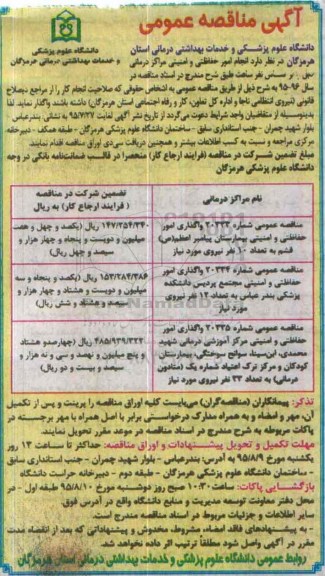 آگهی مناقصه عمومی
دانشگاه علوم پزشکی
و خدمات بهداشتی درمانی هرمزگان
دانشگاه علوم پزشکی و خدمات بهداشتی درمانی استان
هرمزگان در نظر دارد انجام امور حفاظتی و امنیتی مراکز درمانی
نفر ساعت طبق شرح مندرج در اسناد مناقصه در
سال ۹۶-۹۵ به شرح ذیل از طریق مناقصه عمومی به اشخاص حقوقی که صلاحیت انجام کار را از مراجع ذیصلاح
قانونی (نیروی انتظامی ناجا و اداره کل تعاون، کار و رفاه اجتماعی استان هرمزگان) داشته باشند واگذار نماید. لذا
بدینوسیله از متقاضیان واجد شرایط دعوت می‌گردد از تاریخ نشر آگهی لغایت ۹۵/۷/۲۷ به نشانی: بندرعباس
بلوار شهید چمران - جنب استانداری سابق - ساختمان دانشگاه علوم پزشکی هرمزگان - طبقه همکف - دبیرخانه
مرکزی مراجعه و نسبت به کسب اطلاعات بیشتر و همچنین دریافت سی‌دی اوراق مناقصه اقدام نمایند.
مبلغ تضمین شرکت در مناقصه (فرایند ارجاع کار) منحصرا در قالب ضمانت‌نامه بانکی در وجه
دانشگاه علوم پزشکی هرمزگان
نام مراکز درمانی
تضمین شرکت در مناقصه
( فرایند ارجاع کار) به ریال
مناقصه عمومی شماره ۲۰۳۳۳ واگذاری امور
حفاظتی و امنیتی بیمارستان پیامبر اعظم(ص)
قشم به تعداد ۱۰ نفر نیروی مورد نیاز
۱۴۷/۲۵۴/۳۴۰ ریال (یکصد و چهل و هفت
میلیون و دویست و پنجاه و چهار هزار و
سیصد و چهل ریال
مناقصه عمومی شماره ۲۰۳۳۴ واگذاری امور
حفاظتی و امنیتی مجتمع پردیس دانشکده
پزشکی بندر عباس به تعداد ۱۲ نفر نیروی
مورد نیاز
۱۵۳/۲۸۴/۳۸۶ ریال (یکصد و پنجاه و سه
میلیون و دویست و هشتاد و چهار هزار و
سیصد و هشتاد و شش ریال)
مناقصه عمومی شماره ۲۰۳۳۵ واگذاری امور
حفاظتی و امنیتی مرکز آموزشی درمانی شهید
محمدی، ابن‌سینا، سوانح سوختگی، بیمارستان
کودکان و مرکز ترک اعتیاد شماره یک (متادون
درمانی) به تعداد ۳۳ نفر نیروی مورد نیاز
۴۸۵/۹۳۹/۳۲۲ ریال (چهارصدو هشتاد
و پنج میلیون و نهصد و سی و نه هزار و
سیصد و بیست و دو ریال)
تذکر: پیمانکاران (مناقصه‌گران) می‌بایست کلیه اوراق مناقصه را پرینت و پس از تکمیل
آن، مهر و امضاء و به همراه مدارک درخواستی برابر با اصل همراه با مهر برجسته در
پاکات مربوطه به شرح مندرج در اسناد مناقصه در موعد مقرر تحویل نمایند.
مهلت تکمیل و تحویل پیشنهادات و اوراق مناقصه: حداکثر تا ساعت ۱۳ روز
یکشنبه مورخ ۹۵/۸/۹ به آدرس: بندرعباس - بلوار شهید چمران - جنب استانداری سابق
- ساختمان دانشگاه علوم پزشکی هرمزگان - طبقه دوم - دبیرخانه حراست دانشگاه
بازگشایی پاکات: ساعت ۱۰:۳۰ صبح روز دوشنبه مورخ ۹۵/۸/۱۰ طبقه اول - در
محل دفتر معاونت توسعه مدیریت و منابع دانشگاه واقع در آدرس فوق.
سایر اطلاعات و جزئیات مربوط در اسناد مناقصه مندرج است.
- به پیشنهادهای فاقد امضاء، مشروط، مخدوش و پیشنهاداتی که بعد از انقضاء مدت
مقرر در آگهی واصل شود مطلقاً ترتیب اثر داده نخواهد شد.
روابط عمومی دانشگاه علوم پزشکی و خدمات بهداشتی درمانی استان هرمزگان